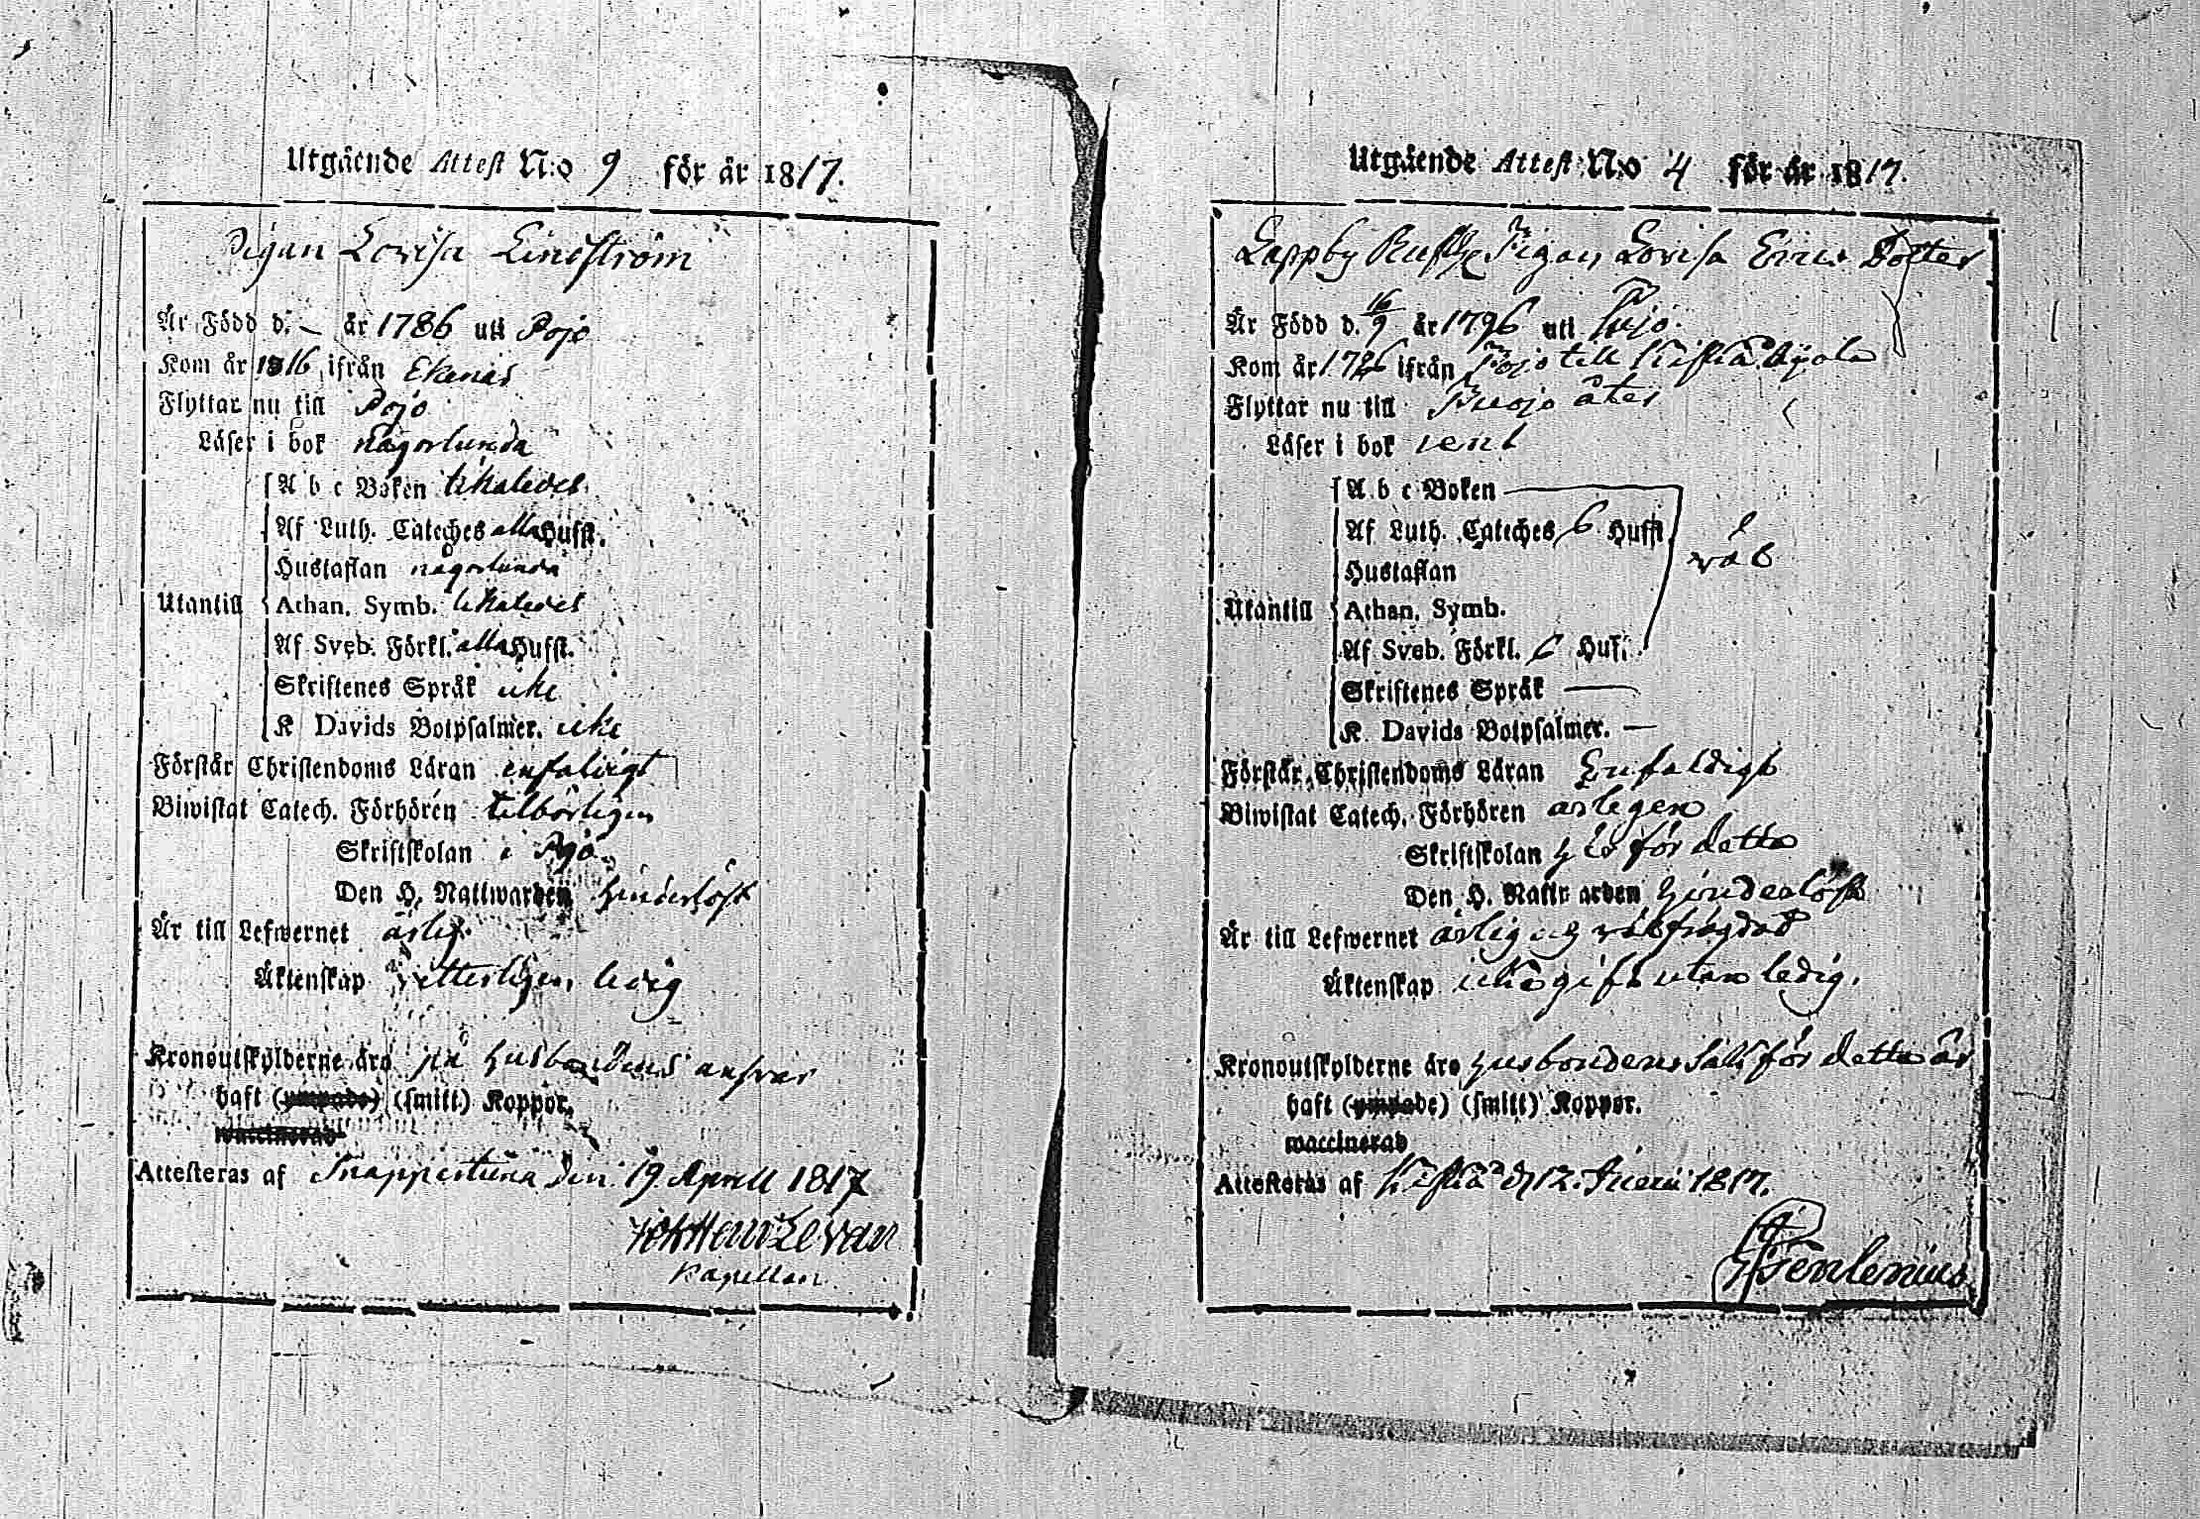 Utgående Attest N:o 9 för år 1817.
Pigan Lovisa Lindström
Är Född d. — år 1786 uti Pojo
Kom år 1816 ifrån Ekenäs
Flyttar nu till Pojo
Läser i bok någorlunda
A b c Boken likaledes
Af Luth. Cateches alla Hufst.
Hustaflan någorlunda
Utantill Athan. Symb. likaledes
Af Sveb. Förkl. alla Hufst.
Skriftenes Språk icke
K Davids Botpsalmer. icke
Förstår Christendoms Läran enfaldigt
Biwistat Catech. Förhören tilbörligen
Skriftskolan i Pojo
Den H. Nattwarden hinderlöst
Är till Lefwernet ärlig
Äktenskap vetterligen ledig
Kronoutskylderne äro på husbondens answar
haft (ympade) (smitt.) Koppor.
waccinerad
Attesteras af Snappertuna den 19 Aprill 1817
Joh Henr Levan
Kapellan
Utgående Attest N:o 4 för år 1817.
Lappby Pigan Lovisa Erics Dotter
Är Född d. 16/9 år 1796 uti Pojo
Kom år 1796 ifrån Pojo till
Flyttar nu till Pojo åter
Läser i bok rent
A b c Boken
Af Luth. Cateches 6 Hufst
väl
Hustaflan
Utantill Athan. Symb.
Af Sveb. Förkl. 6 Huf.
Skriftenes Språk —
K Davids Botpsalmer. —
Förstår Christendoms Läran Enfaldigt
Biwistat Catech. Förhören årligen
Skriftskolan här för detta
Den H. Nattwarden hinderlöst
Är till Lefwernet ärlig och välfrägdad
Äktenskap icke gift utan ledig.
Kronoutskylderne äro husbondens sak för detta år
haft (ympade) (smitt) Koppor.
waccinerad
Attesteras af d 12. Junii 1817.